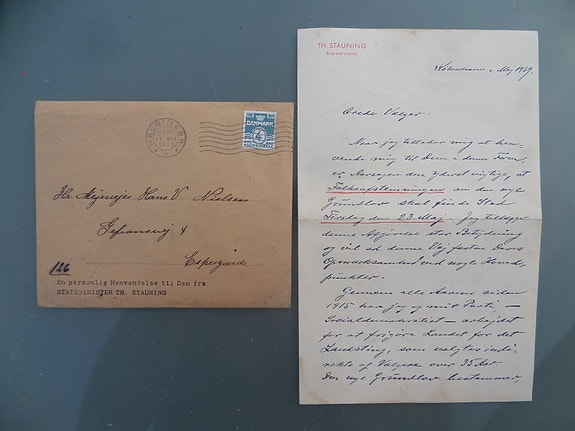 HELSINGØR
DANMARK
4
Hr. Mejeriejer Hans V. Nielsen
Gefionsvej 4
Espergærde
126
En personlig Henvendelse til Dem fra
STATSMINISTER TH. STAUNING
TH. STAUNING
Statsminister
København, Maj 1939.
Ærede Vælger.
Naar jeg tillader mig at hen-
vende mig til Dem i denne Form,
er Aarsagen den yderst vigtige, at
Folkeafstemningen om den nye
Grundlov skal finde Sted
Tirsdag den 23. Maj. Jeg tillægger
denne Afgørelse stor Betydning
og vil ad denne Vej fæste Deres
Opmærksomhed ved nogle Hoved-
punkter.
Gennem alle Aarene siden
1915 har jeg og mit Parti –
Socialdemokratiet – arbejdet
for at frigøre Landet for det
Landsting, som vælges indi-
rekte af Vælgere over 35 Aar.
Den nye Grundlov bestemmer,